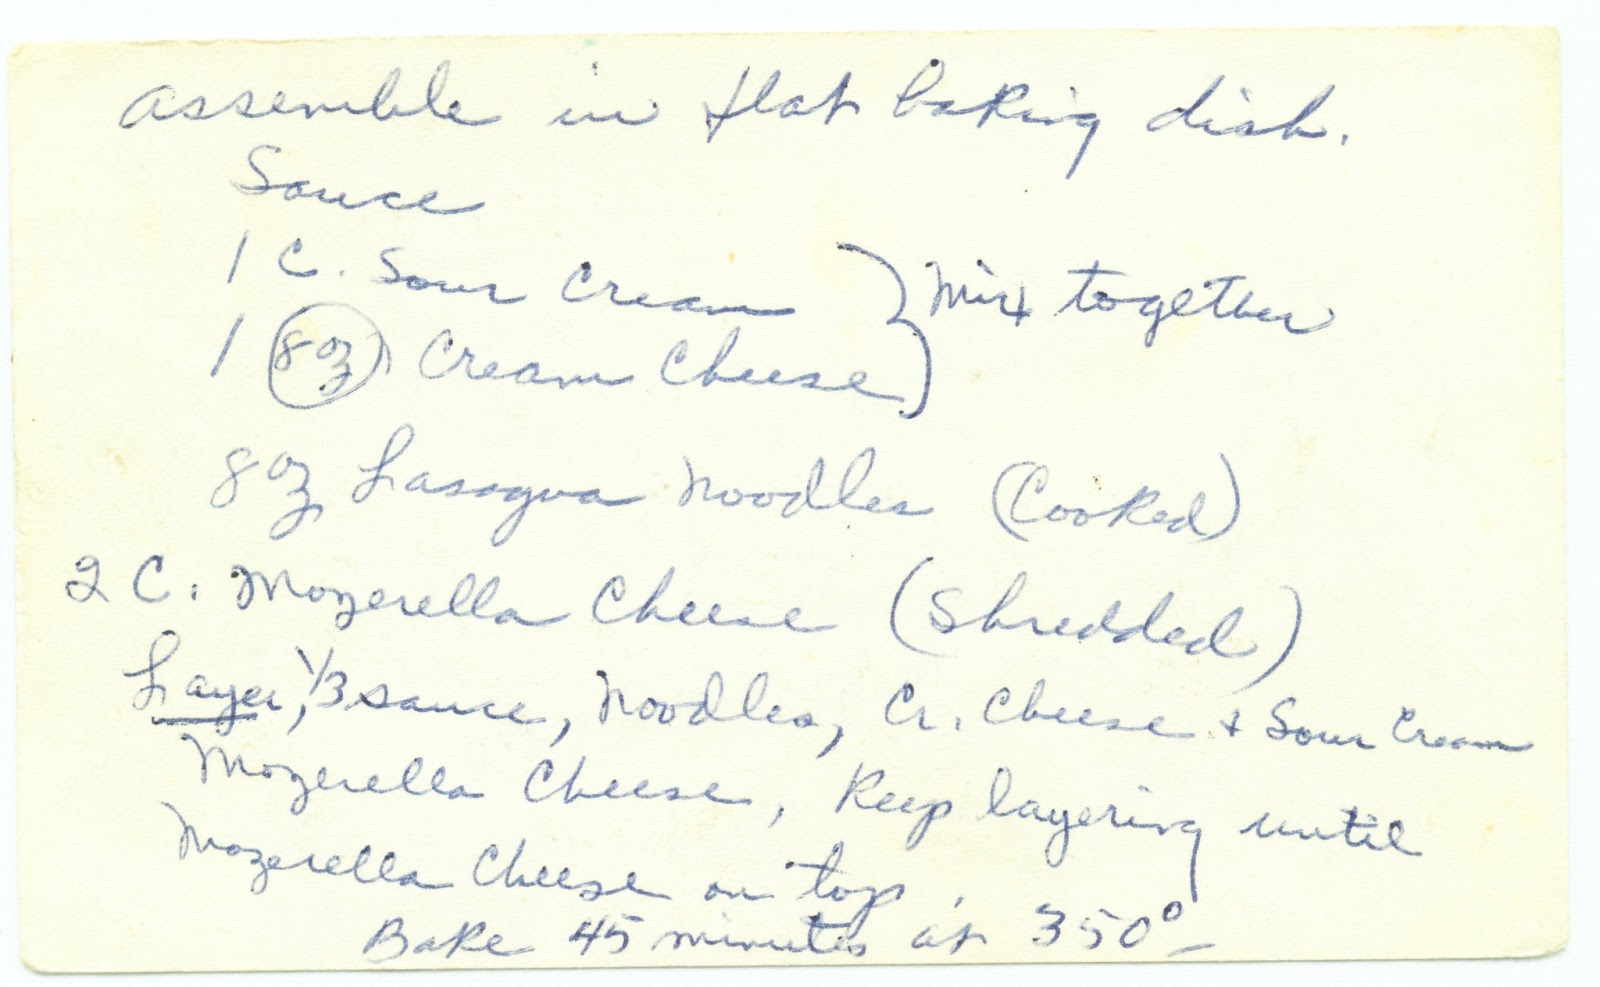 assemble in flat baking dish.
Sauce
1 C. Sour Cream } Mix together
1 (8 oz) Cream Cheese
8 oz Lasagna Noodles (Cooked)
2 C. Mozerella Cheese (Shredded)
Layer, 1/3 sauce, Noodles, Cr. Cheese + Sour Cream
Mozerella Cheese, Keep layering until
Mozerella Cheese on top.
Bake 45 minutes at 350°